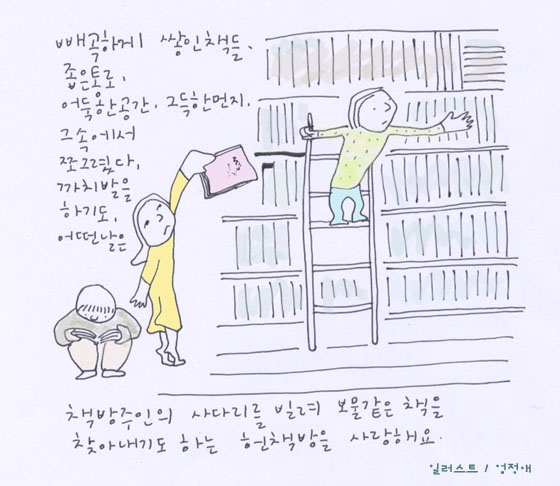 빼곡하게 쌓인책들.
좁은통로,
어둑한공간, 그득한먼지.
그속에서
쪼그렸다,
까치발을
하기도,
어떤날은
책방주인의 사다리를 빌려 보물같은 책을
찾아내기도 하는 헌책방을 사랑해요.
일러스트 / 엄정애